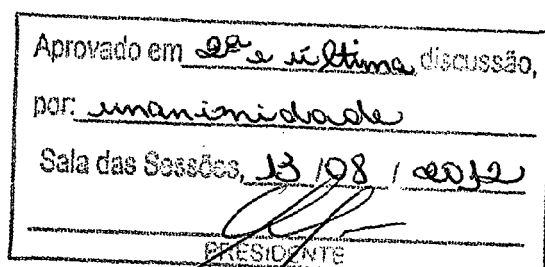 Aprovado em 2ª e última discussão,
por: unanimidade
Sala das Sessões, 13 / 08 / 2012
PRESIDENTE